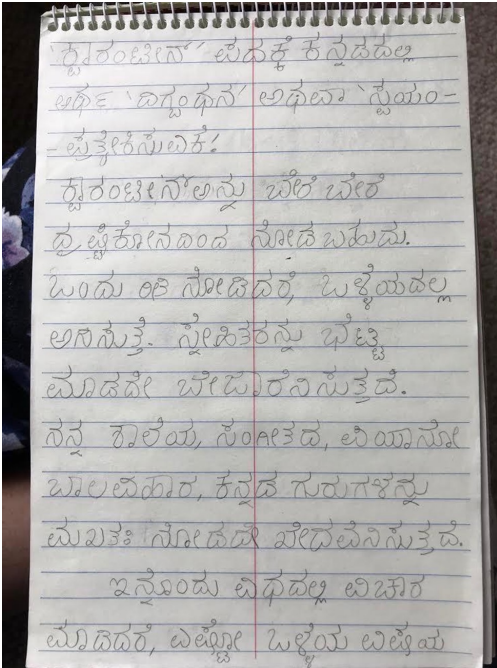 'ಕ್ವಾರಂಟೀನ್' ಪದಕ್ಕೆ ಕನ್ನಡದಲ್ಲಿ
ಅರ್ಥ 'ದಿಗ್ಬಂಧನ' ಅಥವಾ 'ಸ್ವಯಂ-
-ಪ್ರತ್ಯೇಕಿಸುವಿಕೆ!
ಕ್ವಾರಂಟೀನ್ಅನ್ನು ಬೇರೆ ಬೇರೆ
ದೃಷ್ಟಿಕೋನದಿಂದ ನೋಡಬಹುದು.
ಒಂದು ರೀತಿ ನೋಡಿದರೆ, ಒಳ್ಳೆಯದಲ್ಲ
ಅನಿಸುತ್ತೆ. ಸ್ನೇಹಿತರನ್ನು ಭೆಟ್ಟಿ
ಮಾಡದೇ ಬೇಜಾರೆನಿಸುತ್ತದೆ.
ನನ್ನ ಶಾಲೆಯ, ಸಂಗೀತದ, ಪಿಯಾನೋ
ಬಾಲವಿಹಾರ, ಕನ್ನಡ ಗುರುಗಳನ್ನು
ಮುಖತಃ ನೋಡದೇ ಖೇದವೆನಿಸುತ್ತದೆ.
ಇನ್ನೊಂದು ವಿಧದಲ್ಲಿ ವಿಚಾರ
ಮಾಡಿದರೆ, ಎಷ್ಟೋ ಒಳ್ಳೆಯ ವಿಷಯ